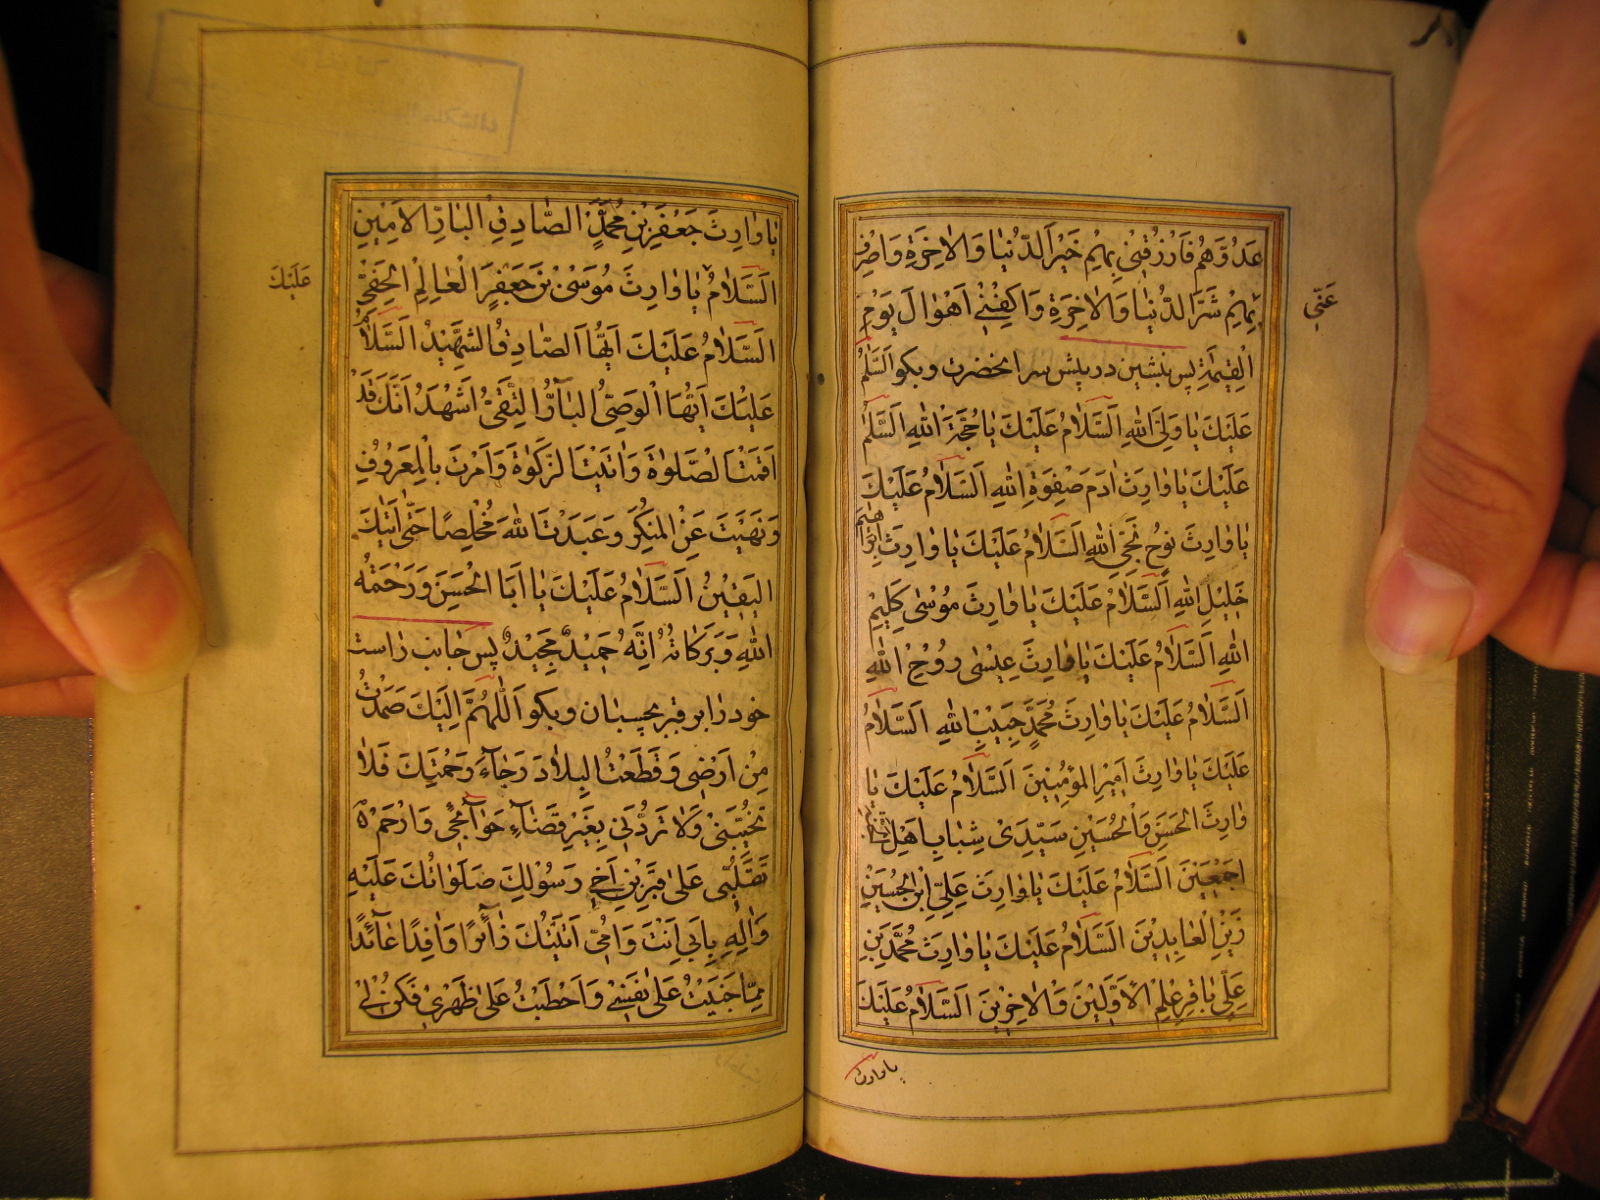 عَدُوَّهُمْ فَارْزُقْنِي بِهِمْ خَيْرَ الدُّنْيَا وَالْاٰخِرَةِ وَاصْرِفْ
عَنّى
بِهِمْ شَرَّ الدُّنْيَا وَالْاٰخِرَةِ وَاكْفِنِي اَهْوَالَ يَوْمِ
الْقِيٰمَةِ پس بنشين در پيش سر انحضرت و بكو اَلسَّلٰمُ
عَلَيْكَ يَا وَلِىَّ اللهِ اَلسَّلَامُ عَلَيْكَ يَا حُجَّةَ اللهِ اَلسَّلٰمُ
عَلَيْكَ يَا وَارِثَ اٰدَمَ صَفْوَةِ اللهِ اَلسَّلَامُ عَلَيْكَ
يَا وَارِثَ نُوحٍ نَجِىِّ اللهِ اَلسَّلَامُ عَلَيْكَ يَا وَارِثَ اِبْرٰاهِيمَ
خَلِيْلِ اللهِ اَلسَّلَامُ عَلَيْكَ يَا وَارِثَ مُوْسٰى كَلِيْمِ
اللهِ اَلسَّلَامُ عَلَيْكَ يَا وَارِثَ عِيْسٰى رُوْحِ اللهِ
اَلسَّلَامُ عَلَيْكَ يَا وَارِثَ مُحَمَّدٍ حَبِيْبِ اللهِ اَلسَّلَامُ
عَلَيْكَ يَا وَارِثَ اَمِيْرِ الْمُؤْمِنِيْنَ اَلسَّلَامُ عَلَيْكَ يَا
وَارِثَ الْحَسَنِ وَالْحُسَيْنِ سَيِّدَىْ شَبَابِ اَهْلِ الْجَنَّةِ
اَجْمَعِيْنَ اَلسَّلَامُ عَلَيْكَ يَا وَارِثَ عَلِىِّ ابْنِ الْحُسَيْنِ
زَيْنِ الْعَابِدِيْنَ اَلسَّلَامُ عَلَيْكَ يَا وَارِثَ مُحَمَّدِ بْنِ
عَلِىٍّ بَاقِرِ عِلْمِ الْاَوَّلِيْنَ وَالْاٰخِرِيْنَ اَلسَّلَامُ عَلَيْكَ
يا وارث
يَا وَارِثَ جَعْفَرِ بْنِ مُحَمَّدٍ الصَّادِقِ الْبَارِّ الْاَمِيْنِ
عَلَيْكَ
اَلسَّلَامُ يَا وَارِثَ مُوْسَىْ بْنَ جَعْفَرٍ الْعَالِمِ الْحَفِىِّ
اَلسَّلَامُ عَلَيْكَ اَيُّهَا الصَّادِقُ الشَّهِيْدُ اَلسَّلَامُ
عَلَيْكَ اَيُّهَا الْوَصِىُّ الْبَارُّ التَّقِىُّ اَشْهَدُ اَنَّكَ قَدْ
اَقَمْتَ الصَّلٰوةَ وَاٰتَيْتَ الزَّكٰوةَ وَاَمَرْتَ بِالْمَعْرُوْفِ
وَنَهَيْتَ عَنِ الْمُنْكَرِ وَعَبَدْتَ اللهَ مُخْلِصًا حَتّٰى اَتٰيكَ
الْيَقِيْنُ اَلسَّلَامُ عَلَيْكَ يَا اَبَا الْحَسَنِ وَرَحْمَتُهُ
اللهِ وَبَرَكَاتُهُ اِنَّهُ حَمِيْدٌ مَجِيْدٌ پس جانب راست
خود را بر قبر بچسبان و بكو اَللّٰهُمَّ اِلَيْكَ صَمَدْتُ
مِنْ اَرْضِى وَقَطَعْتُ الْبِلَادَ رَجَاءَ رَحْمَتِكَ فَلَا
تُخَيِّبْنِىْ وَلَا تَرُدَّنِىْ بِغَيْرِ قَضَاءِ حَوَائِجِى وَارْحَمْ
تَقَلُّبِى عَلٰى قَبْرِ بْنِ اَخِ رَسُوْلِكَ صَلَوَاتُكَ عَلَيْهِ
وَاٰلِهِ بِاَبِى اَنْتَ وَاُمِّى اَتَيْتُكَ زَائِرًا وَافِدًا عَائِذًا
مِمَّا جَنَيْتُ عَلٰى نَفْسِى وَاحْطَبْتُ عَلٰى ظَهْرِىْ فَكُنْ لِىْ